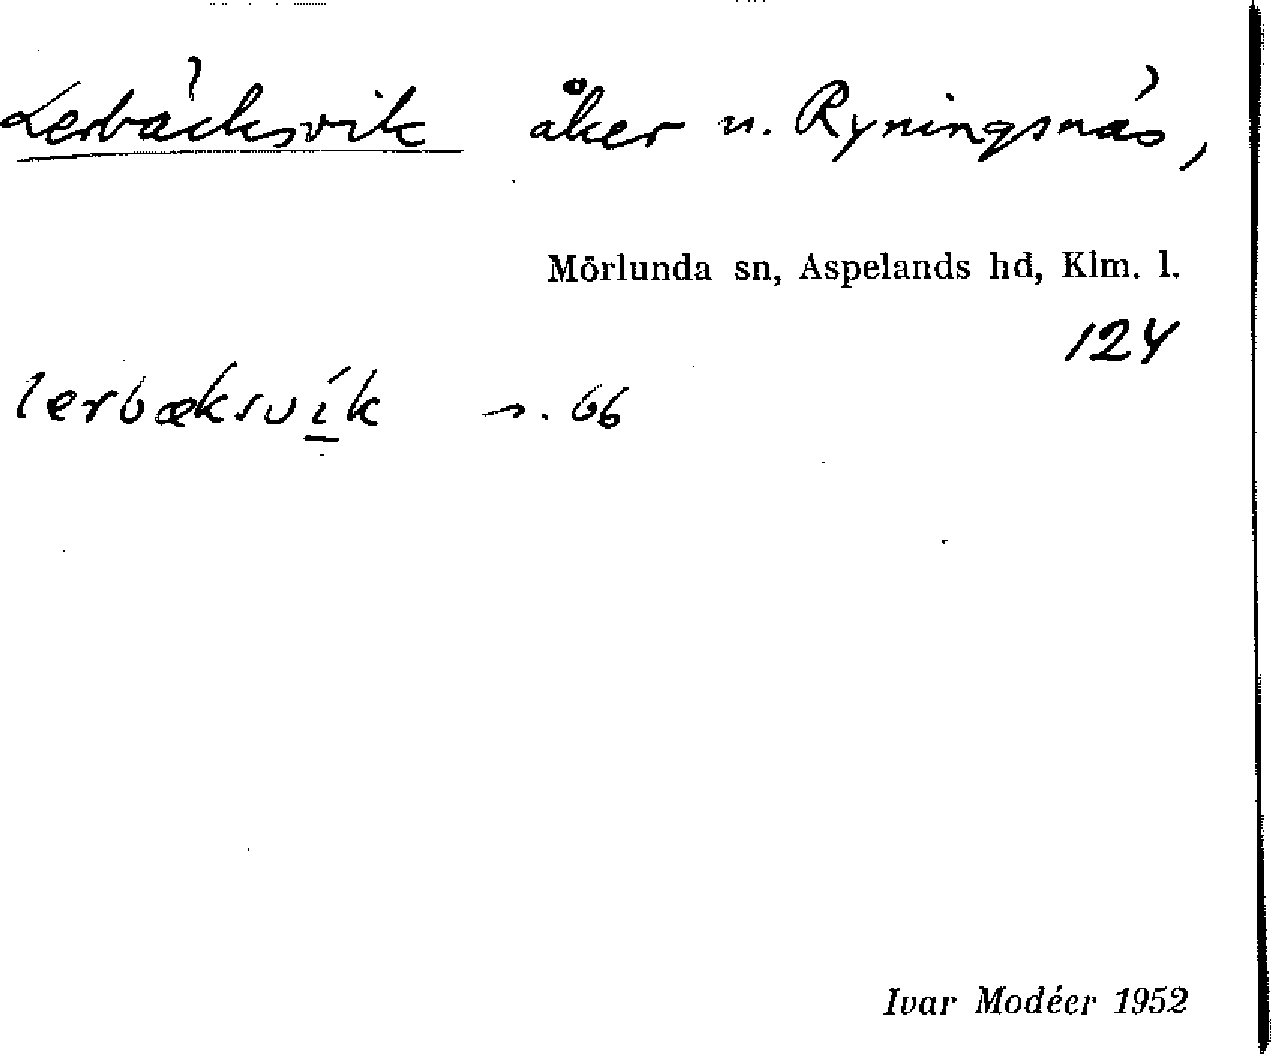 Lerbäcksvik åker u. Ryningsnäs,
Mörlunda sn, Aspelands hd, Klm. l.
124
lerbæksvík s. 66
Ivar Modéer 1952